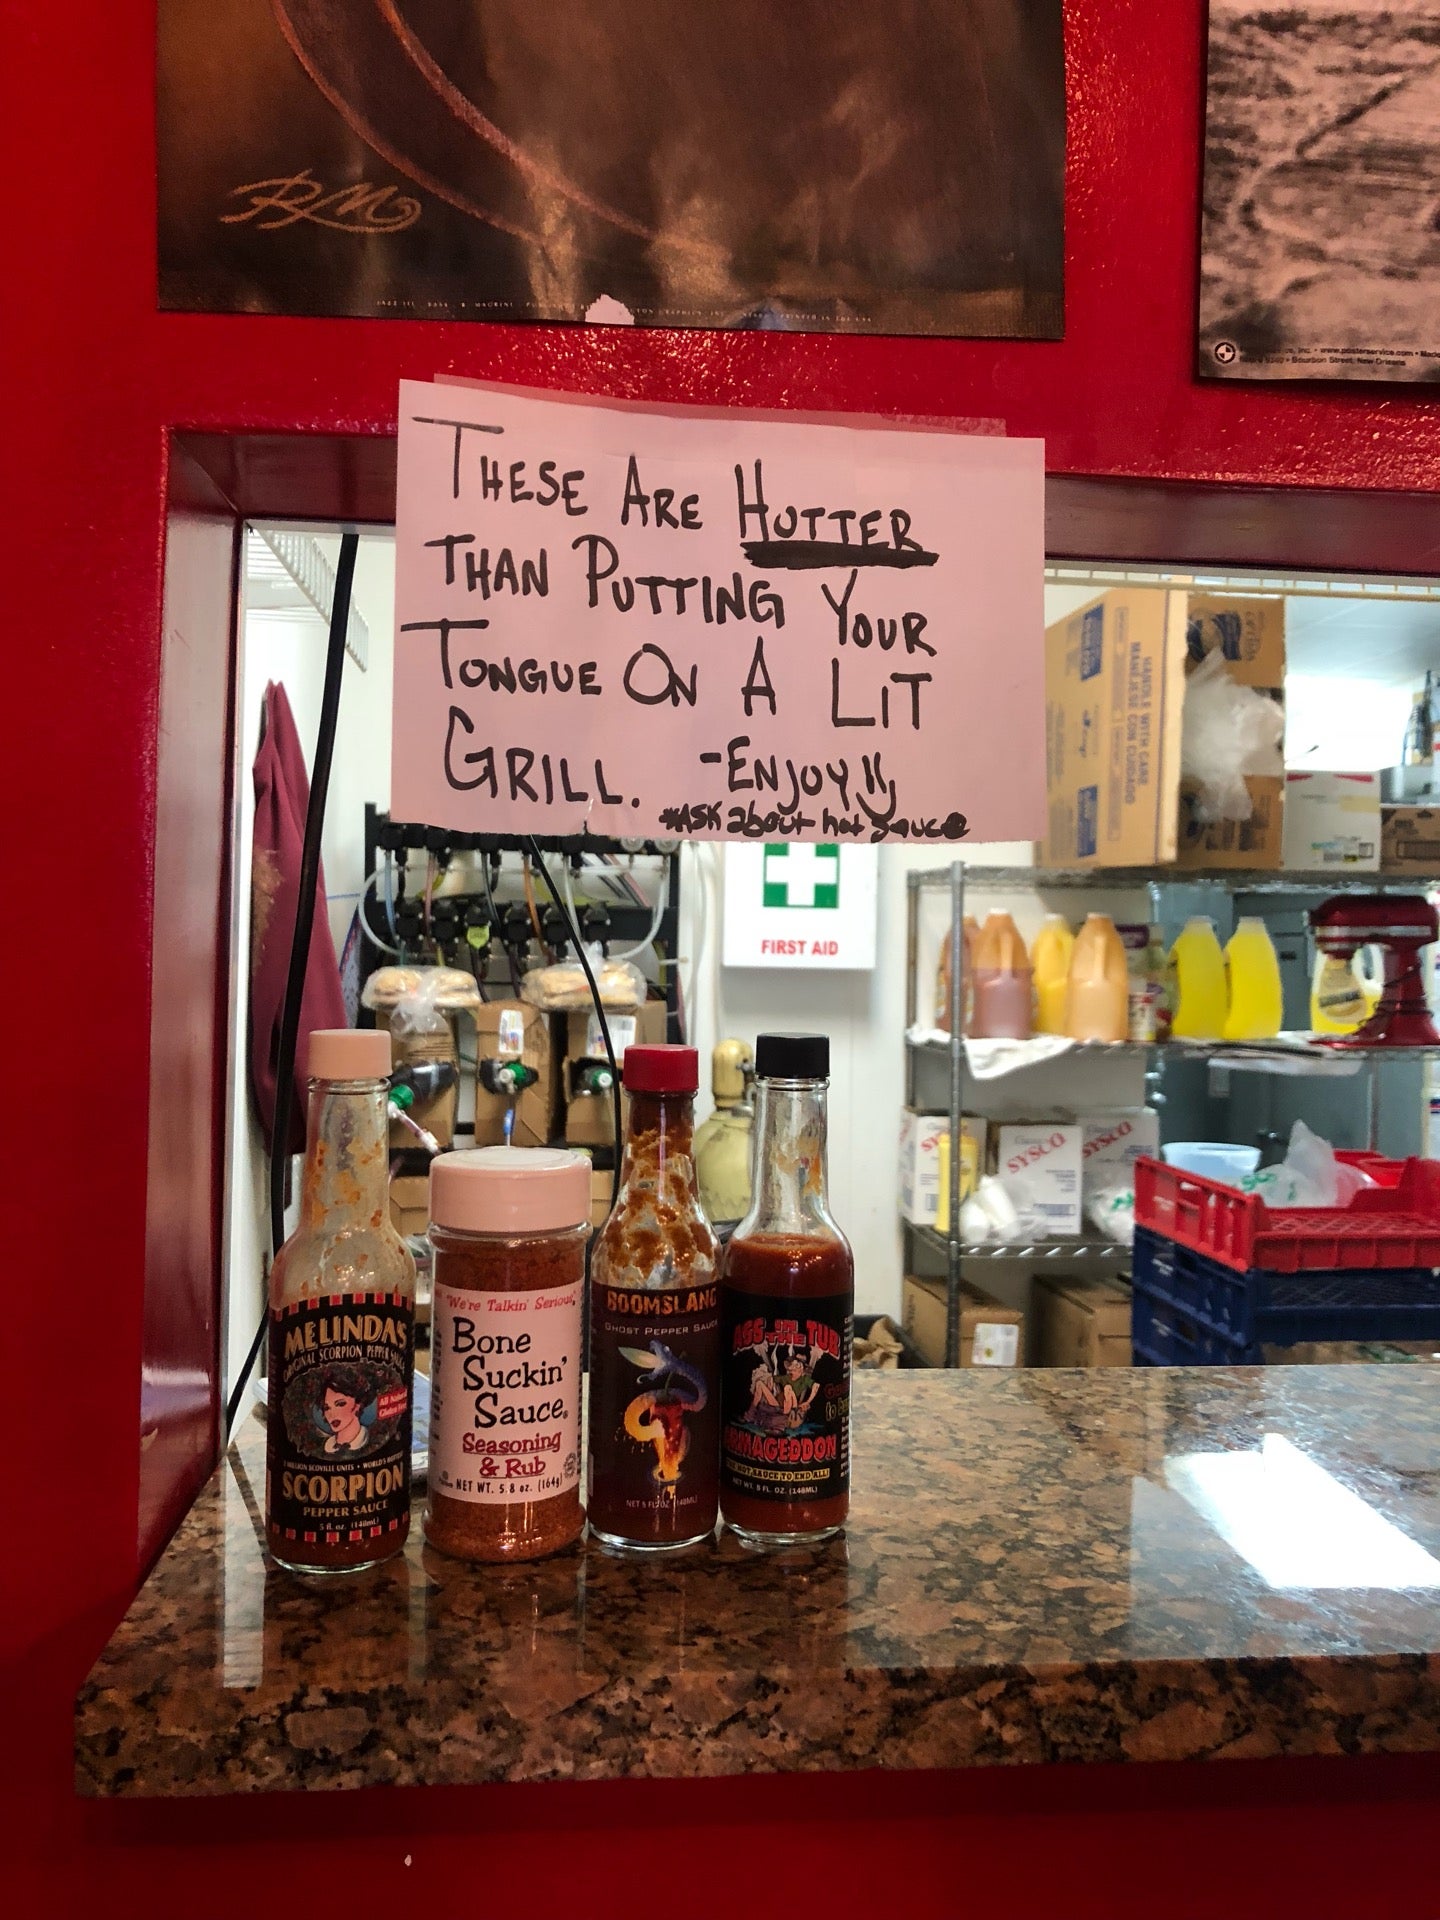 RM
THESE ARE HOTTER
THAN PUTTING YOUR
TONGUE ON A LIT
GRILL. -ENJOY!!
*ASK about hot sauce
www.posterservice.com
Bourbon Street, New Orleans
HANDLE WITH CARE
MANEJESE CON CUIDADO
FIRST AID
SYSCO
SYSCO
MELINDA'S
ORIGINAL SCORPION PEPPER SAUCE
All Natural
Gluten Free
SCORPION
PEPPER SAUCE
5 fl. oz. (148mL)
"We're Talkin' Serious"
Bone
Suckin'
Sauce®
Seasoning
& Rub
NET WT. 5.8 oz. (164g)
BOOMSLANG
GHOST PEPPER SAUCE
NET 5 FL OZ (148ML)
ASS IN THE TUB
ARMAGEDDON
THE HOT SAUCE TO END ALL!
NET WT. 5 FL. OZ. (148ML)